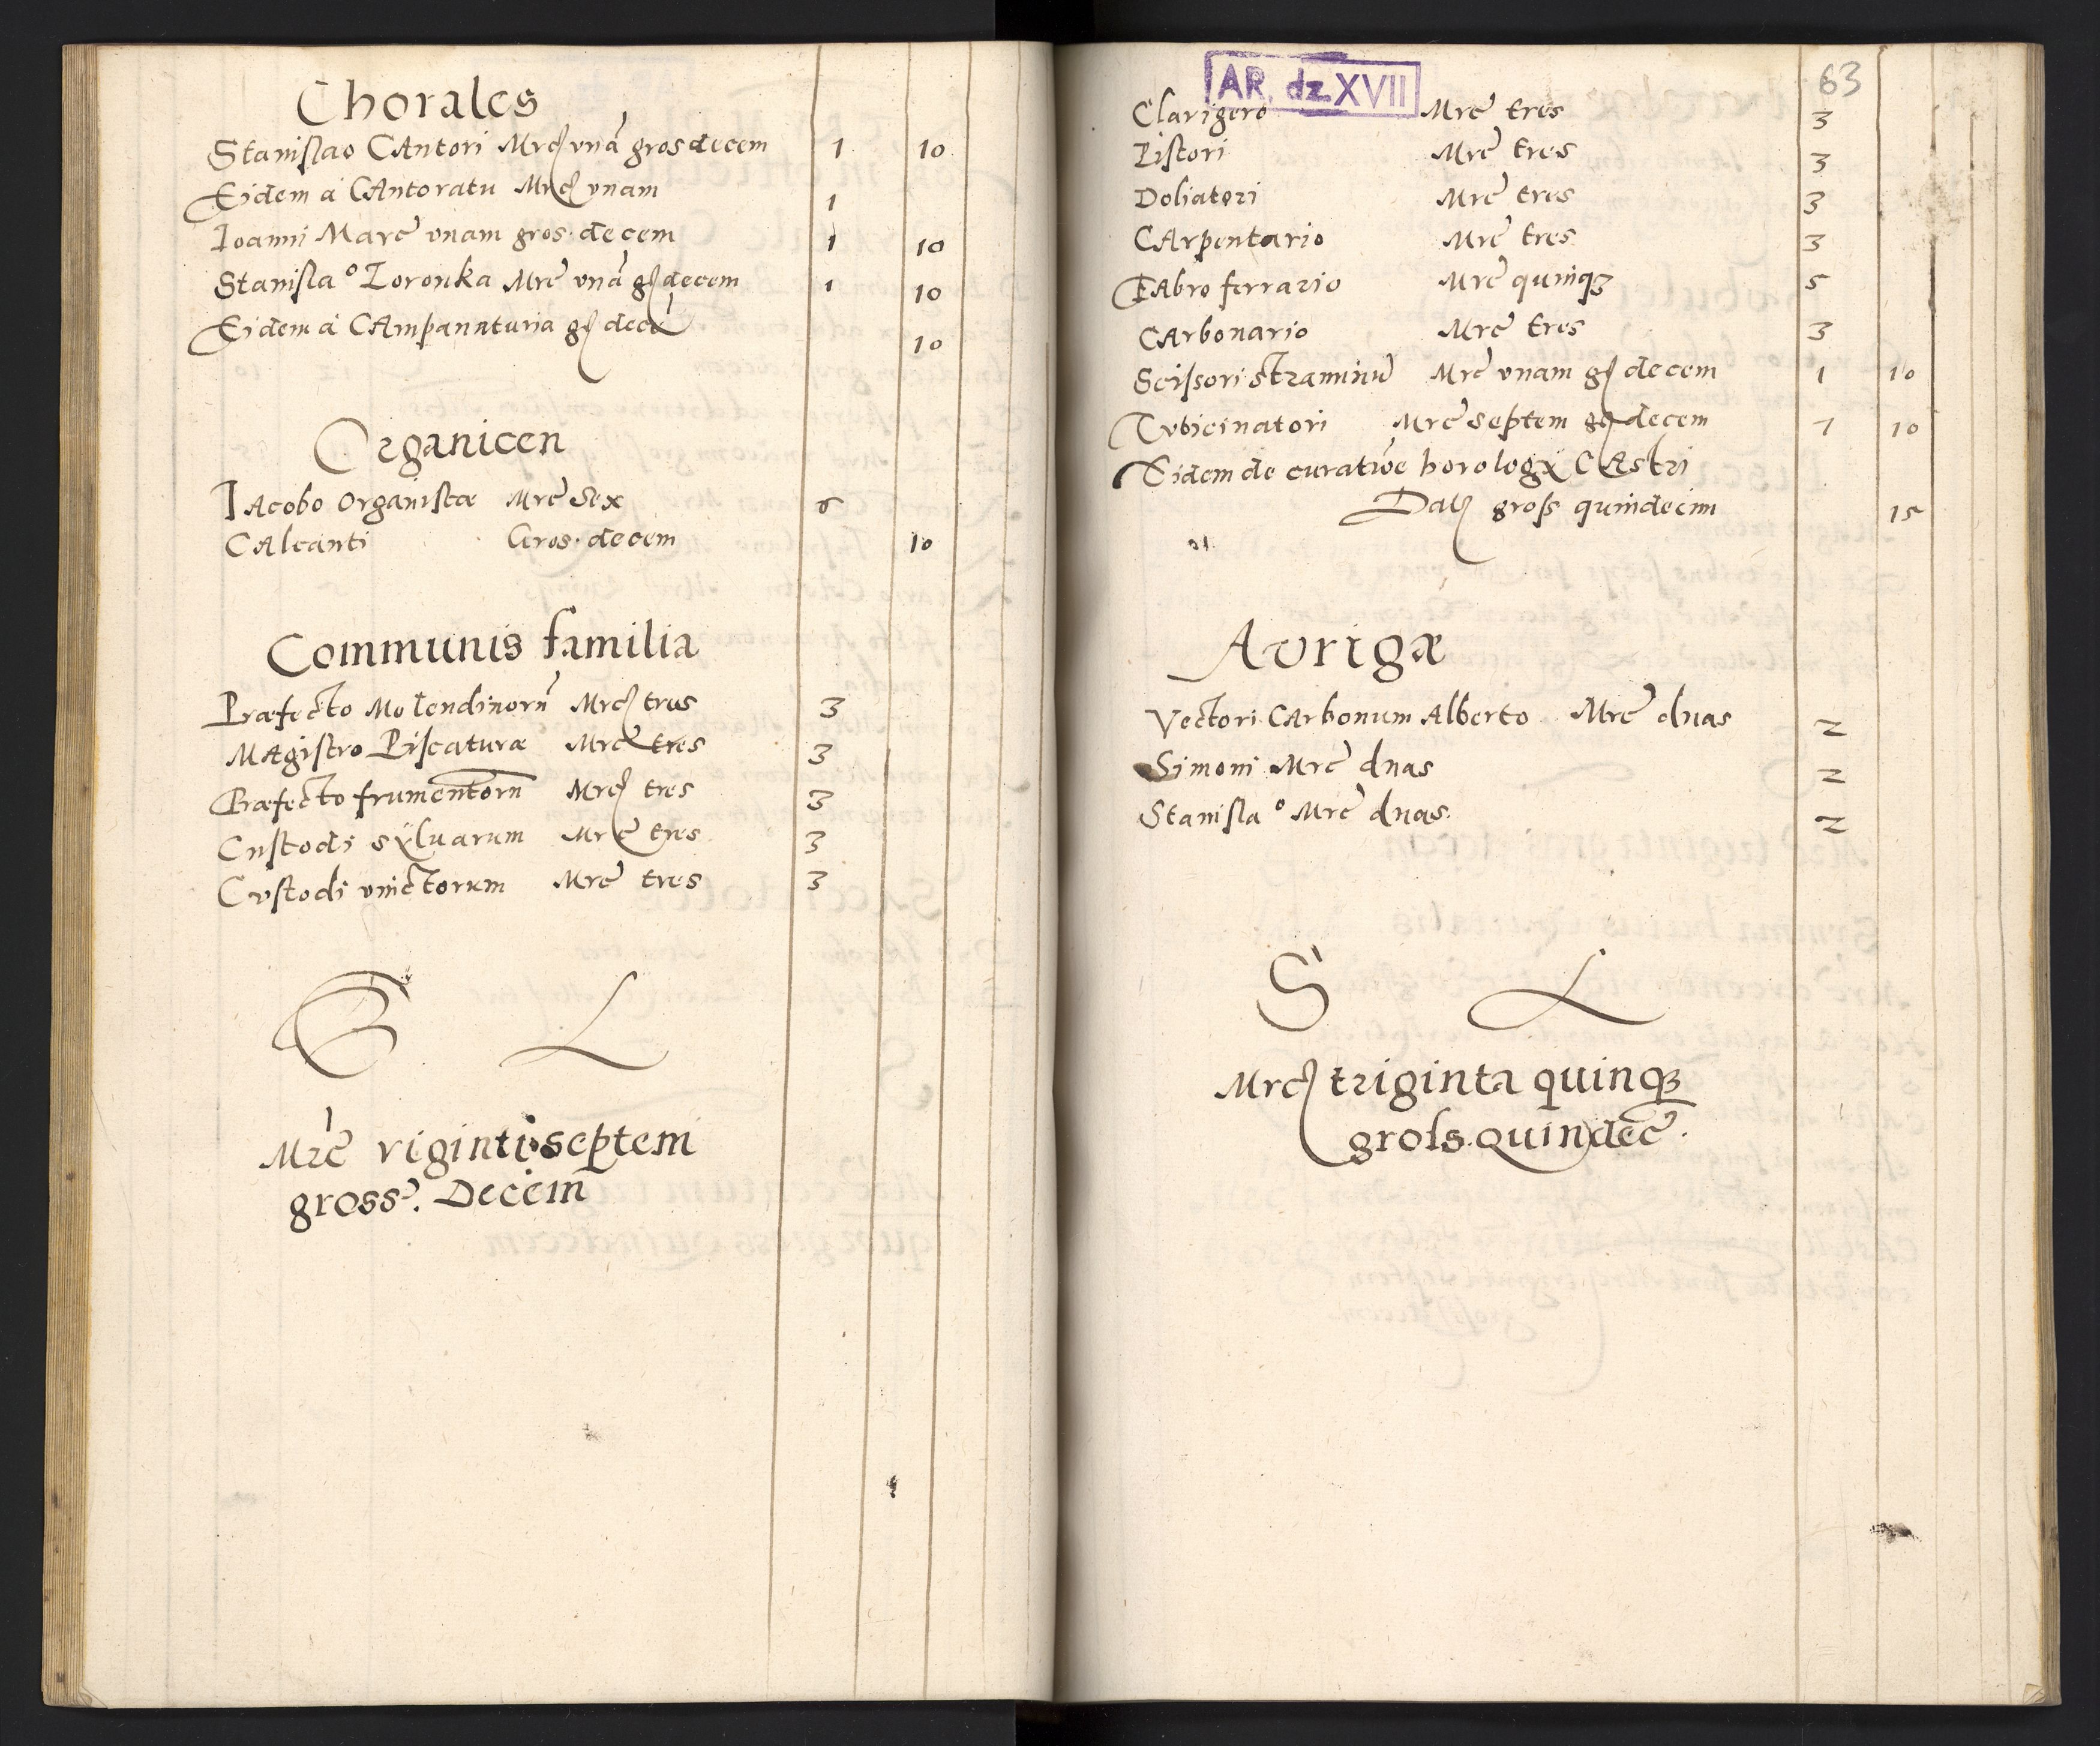 Chorales
Stanislao Cantori Mrc unā gros decem 1 10
Eidem á Cantoratu Mrc unam 1
Ioanni Marc unam gros. decem 1 10
Stanislao Zoronka Mrc unā gs decem 1 10
Eidem á Campannturia gs decē 10
Organicen
Iacobo Organistæ Mrc Sex 6
Calcanti Gros. decem 10
Communis familia
Præfecto Molendinorū Mrc tres 3
Magistro Piscaturæ Mrc tres 3
Præfecto frumentorū Mrc tres 3
Custodi sÿluarum Mrc tres 3
Custodi vinctorum Mrc tres 3
S L
Mrc viginti septem
gross. Decem
AR. dz. XVII
63
Clavigero Mrc tres 3
Pistori Mrc tres 3
Doliatori Mrc tres 3
Carpentario Mrc tres 3
Fabro ferrario Mrc quinqꝫ 5
Carbonario Mrc tres 3
Scissori straminū Mrc unam gs decem 1 10
Tubicinatori Mrc septem gs decem 7 10
Eidem de curatiōe horologÿ Castri
Dat gross quindecim 15
Aurigæ
Vectori Carbonum Alberto Mrc duas 2
Simoni Mrc duas 2
Stanislao Mrc duas 2
S L
Mrc triginta quinqꝫ
gross. quindecē.